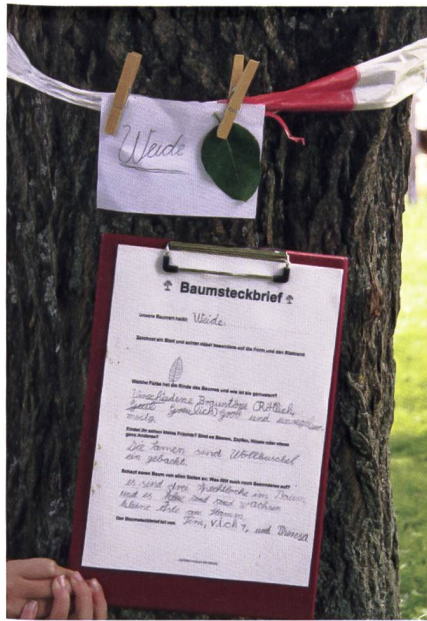 Weide
Baumsteckbrief
Unser Baum heißt: Weide
Zeichnet ein Blatt und achtet dabei besonders auf die Form und den Blattrand.
Welche Farbe hat die Rinde des Baumes und wie ist sie gemustert?
Verschiedene Brauntöne (Rötlich,
gräulich) grob und
Findet ihr schon kleine Früchte? Sind es Beeren, Zapfen, Nüsse oder etwas
ganz Anderes?
Die Samen sind Wollkuschel
ein gebackt.
Schaut euren Baum von allen Seiten an: Was fällt euch noch Besonderes auf?
es sind drei Spechtlöche im Baum,
und es wachsen
kleine Äste am Stamm.
Der Baumsteckbrief ist von: Tim, und Theresa